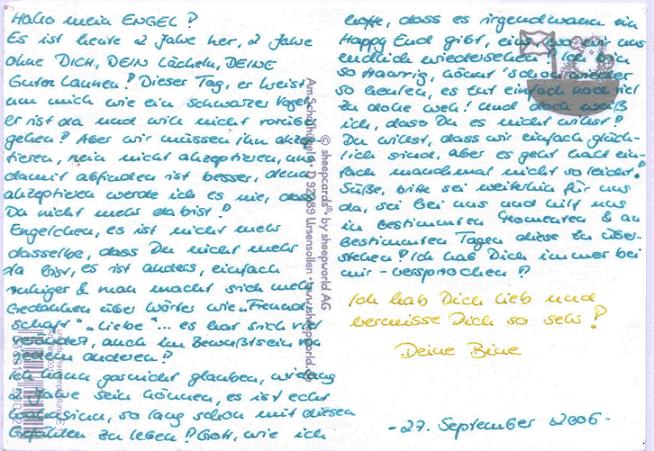 Hallo mein ENGEL?
Es ist heute 2 Jahre her, 2 Jahre
ohne DICH, DEIN Lächeln, DEINE
Guten Launen! Dieser Tag, er kreist
um mich wie ein schwarzer Vogel,
er ist da und will nicht vorüber
gehen? Aber wir müssen ihn akzep
tieren, nein nicht akzeptieren, uns
damit abfinden ist besser, denn
akzeptieren werde ich es nie, dass
Du nicht mehr da bist?
Engelchen, es ist nicht mehr
dasselbe, dass Du nicht mehr
da bist, es ist anders, einfach
ruhiger & man macht sich mehr
Gedanken über Wörter wie „Freund
schaft" „Liebe"... es hat sich
verändert, auch im Bewußtsein
jedem anderen?
Ich kann garnicht glauben, wie lang
2 Jahre sein können, es ist echt
Wahnsinn, so lang schon mit diesen
Gefühlen zu leben? Gott, wie ich
hoffe, dass es irgendwann ein
Happy End gibt, wo wir uns
endlich wiedersehen! Ich bin
so traurig, könnt' schon wieder
so heulen, es tut einfach noch viel
zu dolle weh! Und doch weiß
ich, dass Du es nicht willst?
Du willst, dass wir einfach glück-
lich sind, aber es geht halt ein-
fach manchmal nicht so leicht?
Süße, bitte sei weiterhin für uns
da, sei bei uns und hilf uns
in bestimmten Momenten & an
bestimmten Tagen diese zu über-
stehen? Ich hab Dich immer bei
mir - versprochen?
Ich hab Dich lieb und
vermisse Dich so sehr?
Deine Bine
-27. September 2006-
© sheepcards® by sheepworld AG
Am Schafhügel 1 · D 92289 Ursensollen · www.sheepworld.de